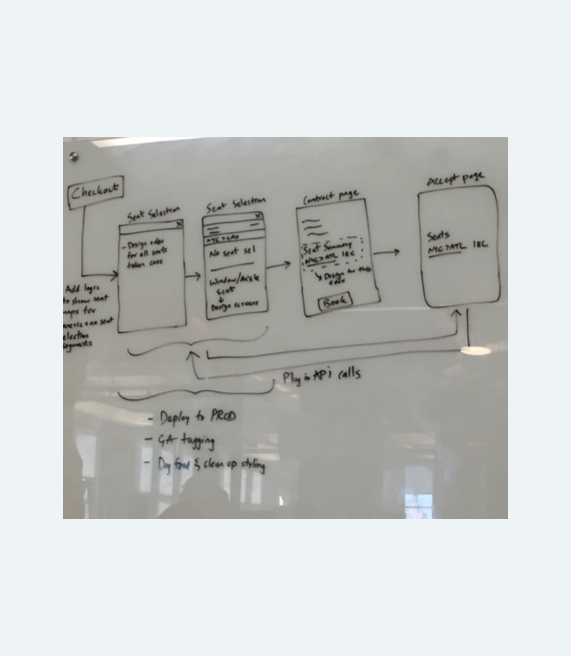 Checkout
Add logic
to show seat
maps for
seat
selection
segments
Seat Selection
x
- Design
for all seats
taken case
Seat Selection
x
NYC > LAX
No seat sel
Window/Aisle
seat
Design screens
Contract page
Seat Summary
NYC > ATL 18C
Design for this
Book
Accept page
Seats
NYC > ATL 18C
Plug in API calls
- Deploy to PROD
- GA tagging
- Dog food & clean up styling